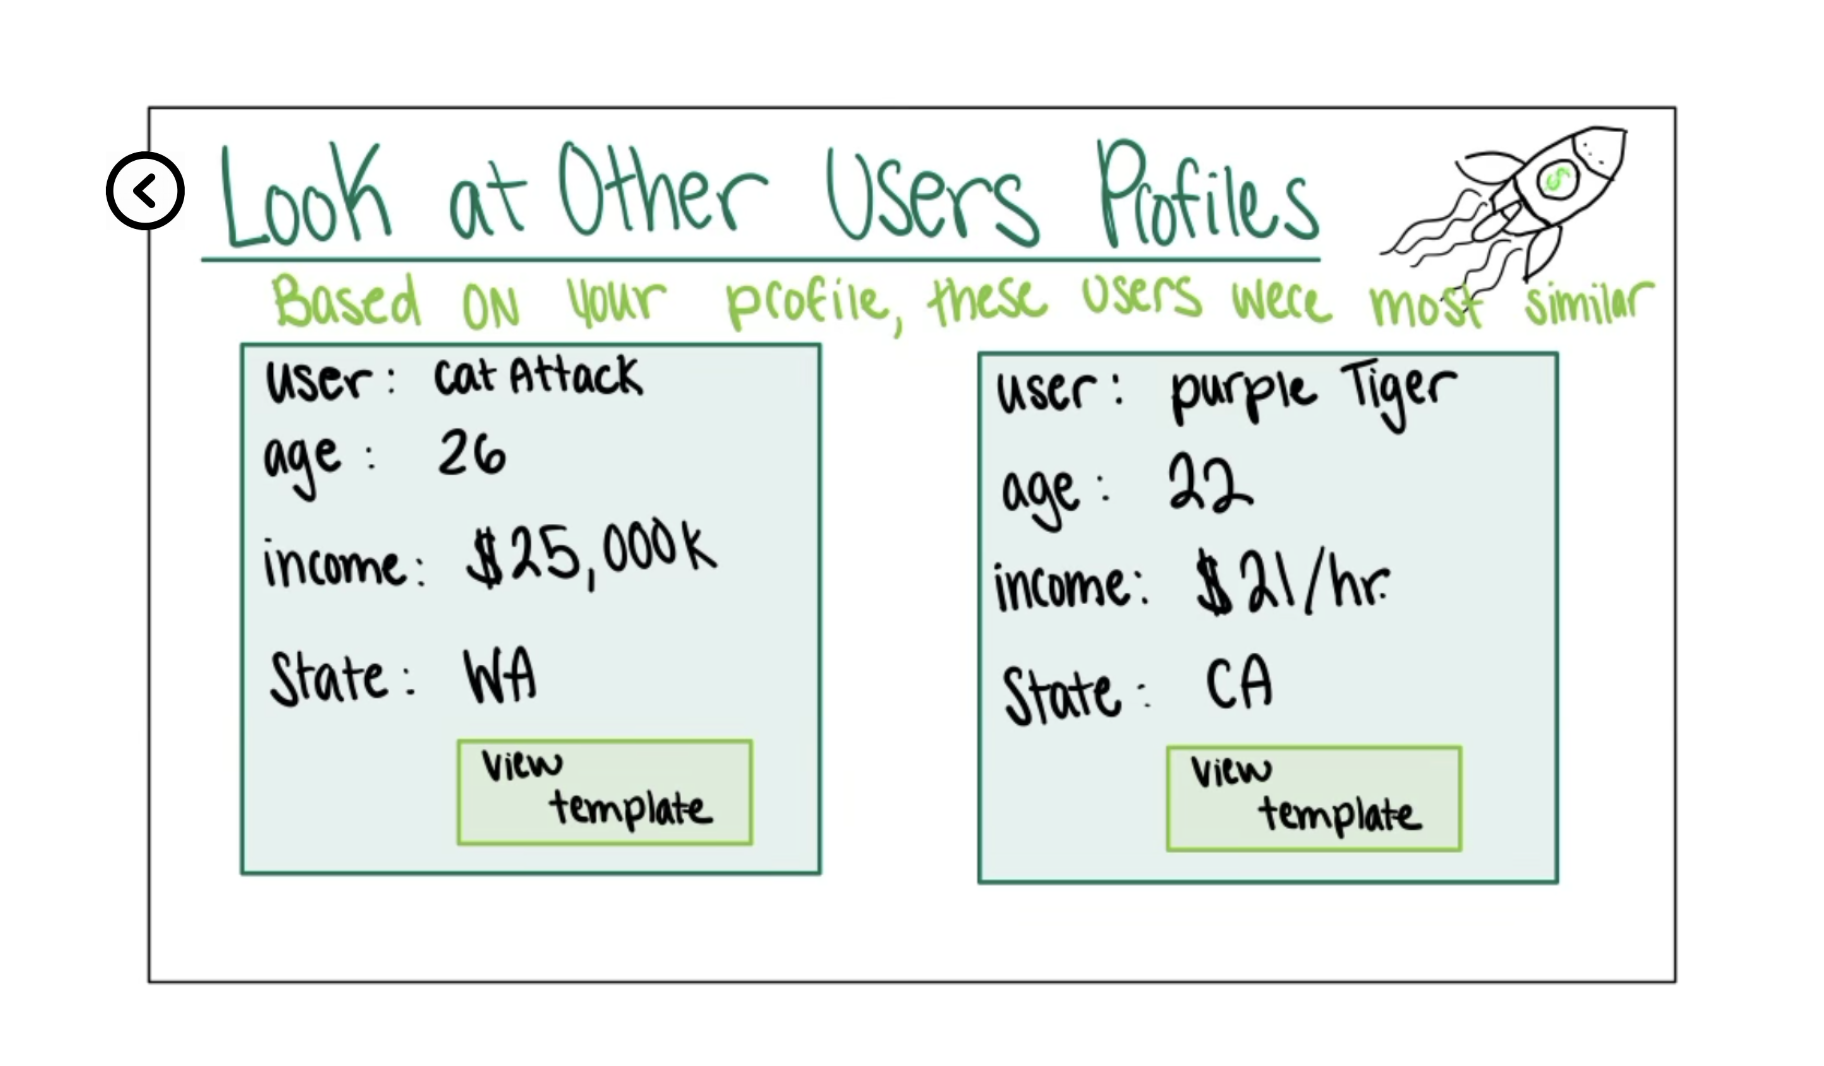 Look at Other Users Profiles
Based on your profile, these users were most similar
user: cat Attack
age: 26
income: $25,000k
State: WA
view
template
user: purple Tiger
age: 22
income: $21/hr.
State: CA
view
template